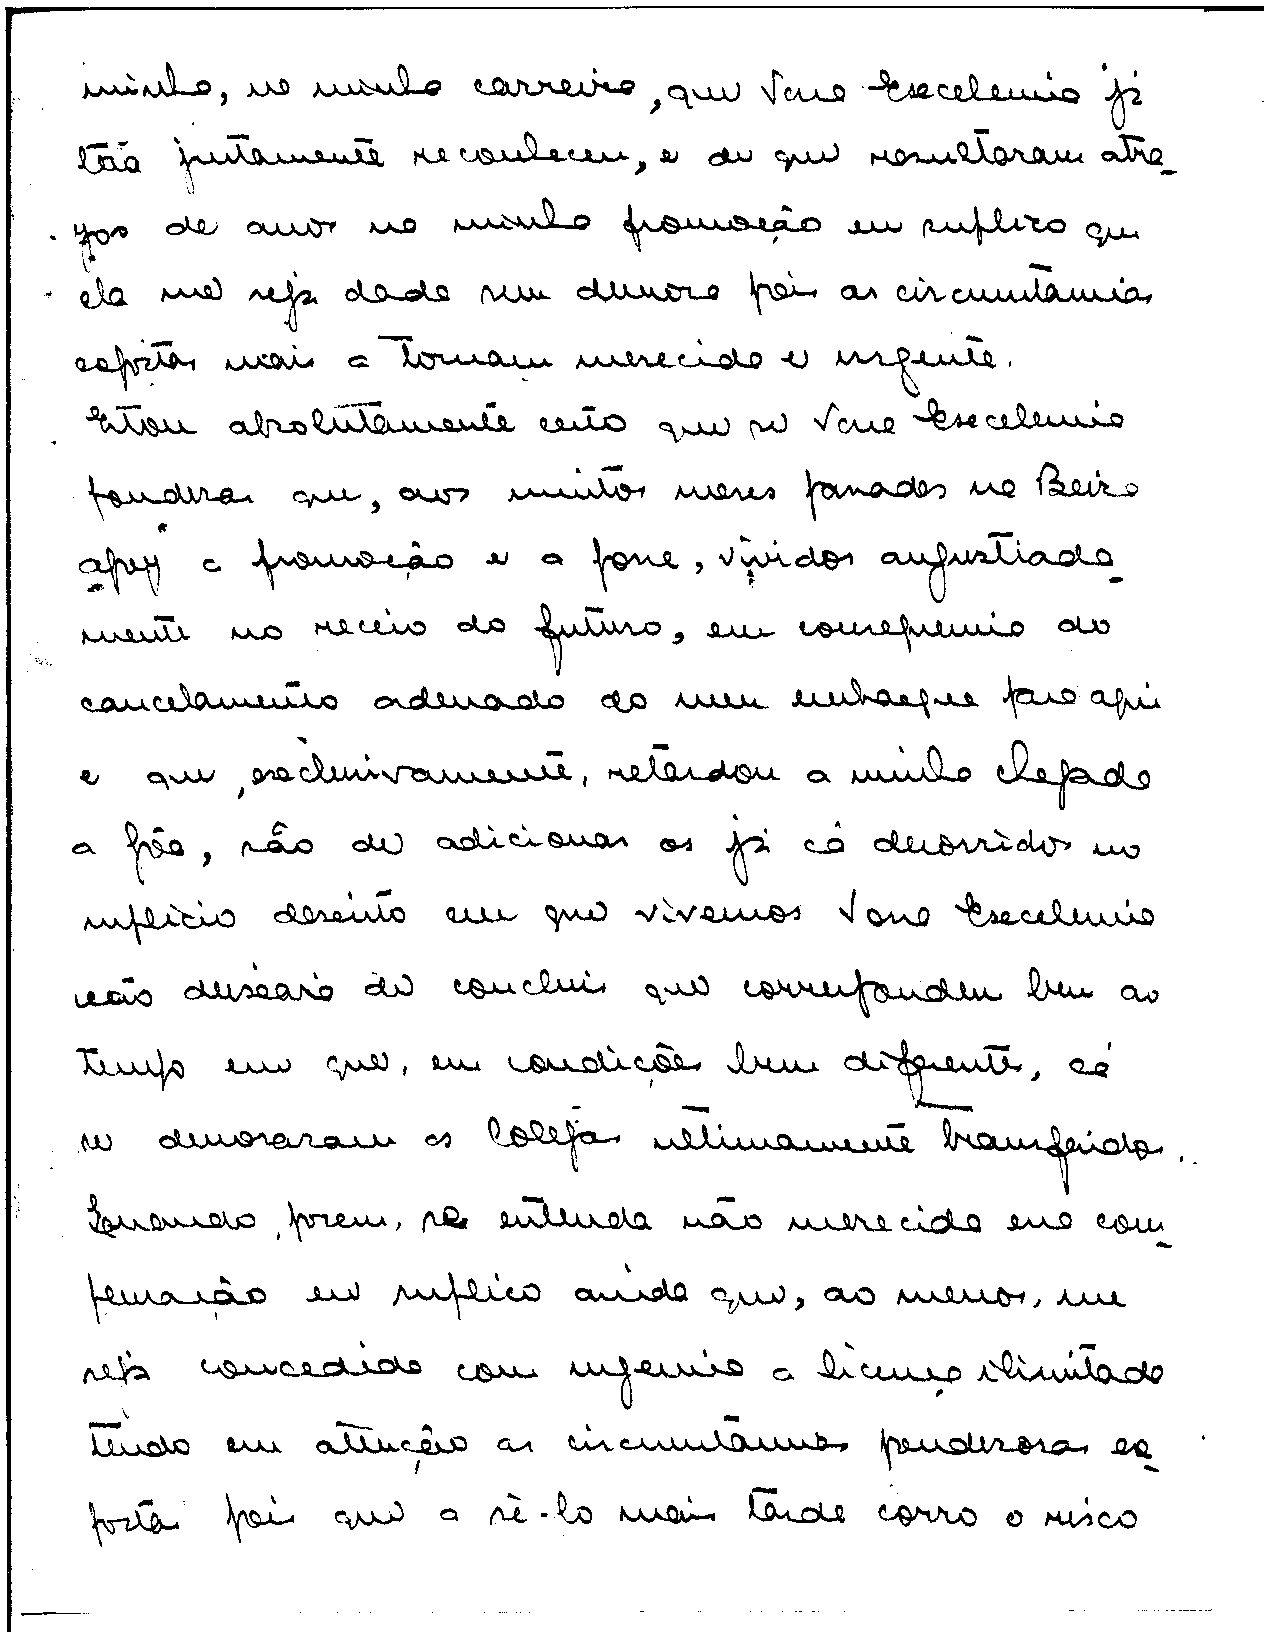 minha, na minha carreira, que Vossa Excelencia já
tão justamente reconheceu, e de que resultaram atra-
zos de anos na minha promoção eu suplico que
ela me seja dada sem demora pois as circunstancias
expostas mais a tornam merecida e urgente.
Estou absolutamente certo que se Vossa Excelencia
ponderar que, aos muitos meses passados na Beira
após a promoção e a posse, vividos angustiada-
mente no receio do futuro, em consequencia do
cancelamento ordenado do meu embarque para aqui
e que, exclusivamente, retardou a minha chegada
a Gôa, são de adicionar os já cá decorridos no
suplicio descrito em que vivemos Vossa Excelencia
não deixará de concluir que correspondem bem ao
tempo em que, em condições bem diferentes, cá
se demoraram os Colegas ultimamente transferidos.
Quando, porem, se entenda não merecida essa com-
pensação eu suplico ainda que, ao menos, me
seja concedida com urgencia a licença ilimitada
tendo em atenção as circunstancias ponderosas ex-
postas pois que a sê-lo mais tarde corro o risco